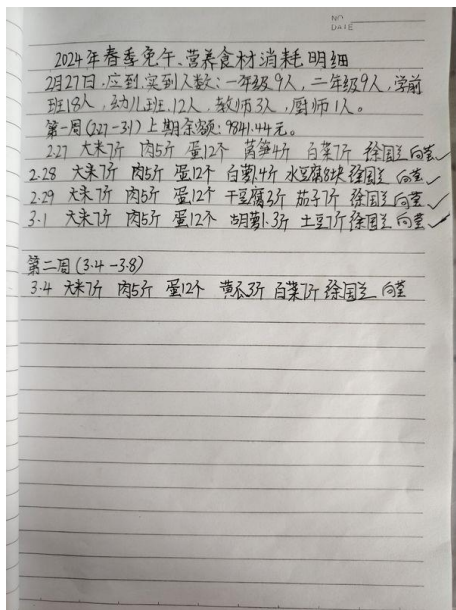 NO
DATE
2024年春季免午、营养食材消耗明细
2月27日,应到,实到人数:一年级9人,二年级9人,学前
班18人,幼儿班,12人,教师3人,厨师1人。
第一周(2.27-3.1)上期余额:9841.44元。
2.27 大米7斤 肉5斤 蛋12个 莴笋4斤 白菜7斤 徐国兰 向莹✓
2.28 大米7斤 肉5斤 蛋12个 白萝.4斤 水豆腐8块 徐国兰 向莹✓
2.29 大米7斤 肉5斤 蛋12个 干豆腐3斤 茄子7斤 徐国兰 向莹✓
3.1 大米7斤 肉5斤 蛋12个 胡萝.3斤 土豆7斤 徐国兰 向莹✓
第二周(3.4-3.8)
3.4 大米7斤 肉5斤 蛋12个 黄瓜3斤 白菜7斤 徐国兰 向莹